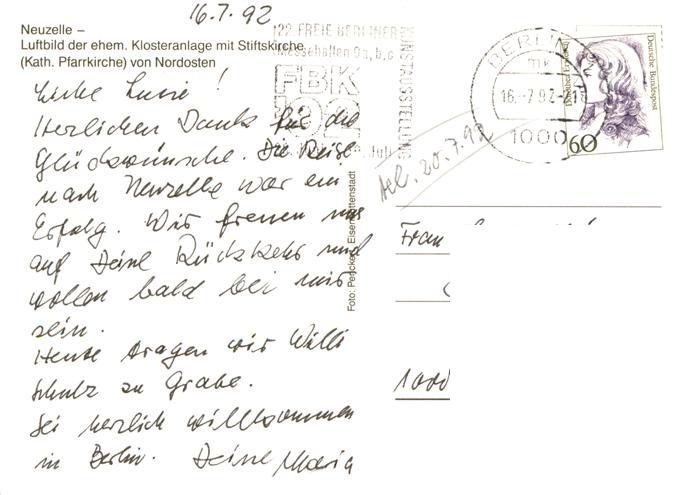 16.7.92
Neuzelle –
Luftbild der ehem. Klosteranlage mit Stiftskirche
(Kath. Pfarrkirche) von Nordosten
Liebe Lucie!
Herzlichen Dank für die
Glückswünsche. Die Reise
nach Neuzelle war ein
Erfolg. Wir freuen uns
auf Deine Rückkehr und
wollen bald bei mir
sein.
Heute tragen wir Willi
Schulz zu Grabe.
Sei herzlich willkommen
in Berlin. Deine Maria
22. FREIE BERLINER
KUNSTAUSSTELLUNG
Messehallen 9a, b, c
FBK
'92
BERLIN
mk
16.-7.92-21
1000
Deutsche Bundespost
60
20.7.92
Foto: Eisenhüttenstadt
Frau
1000